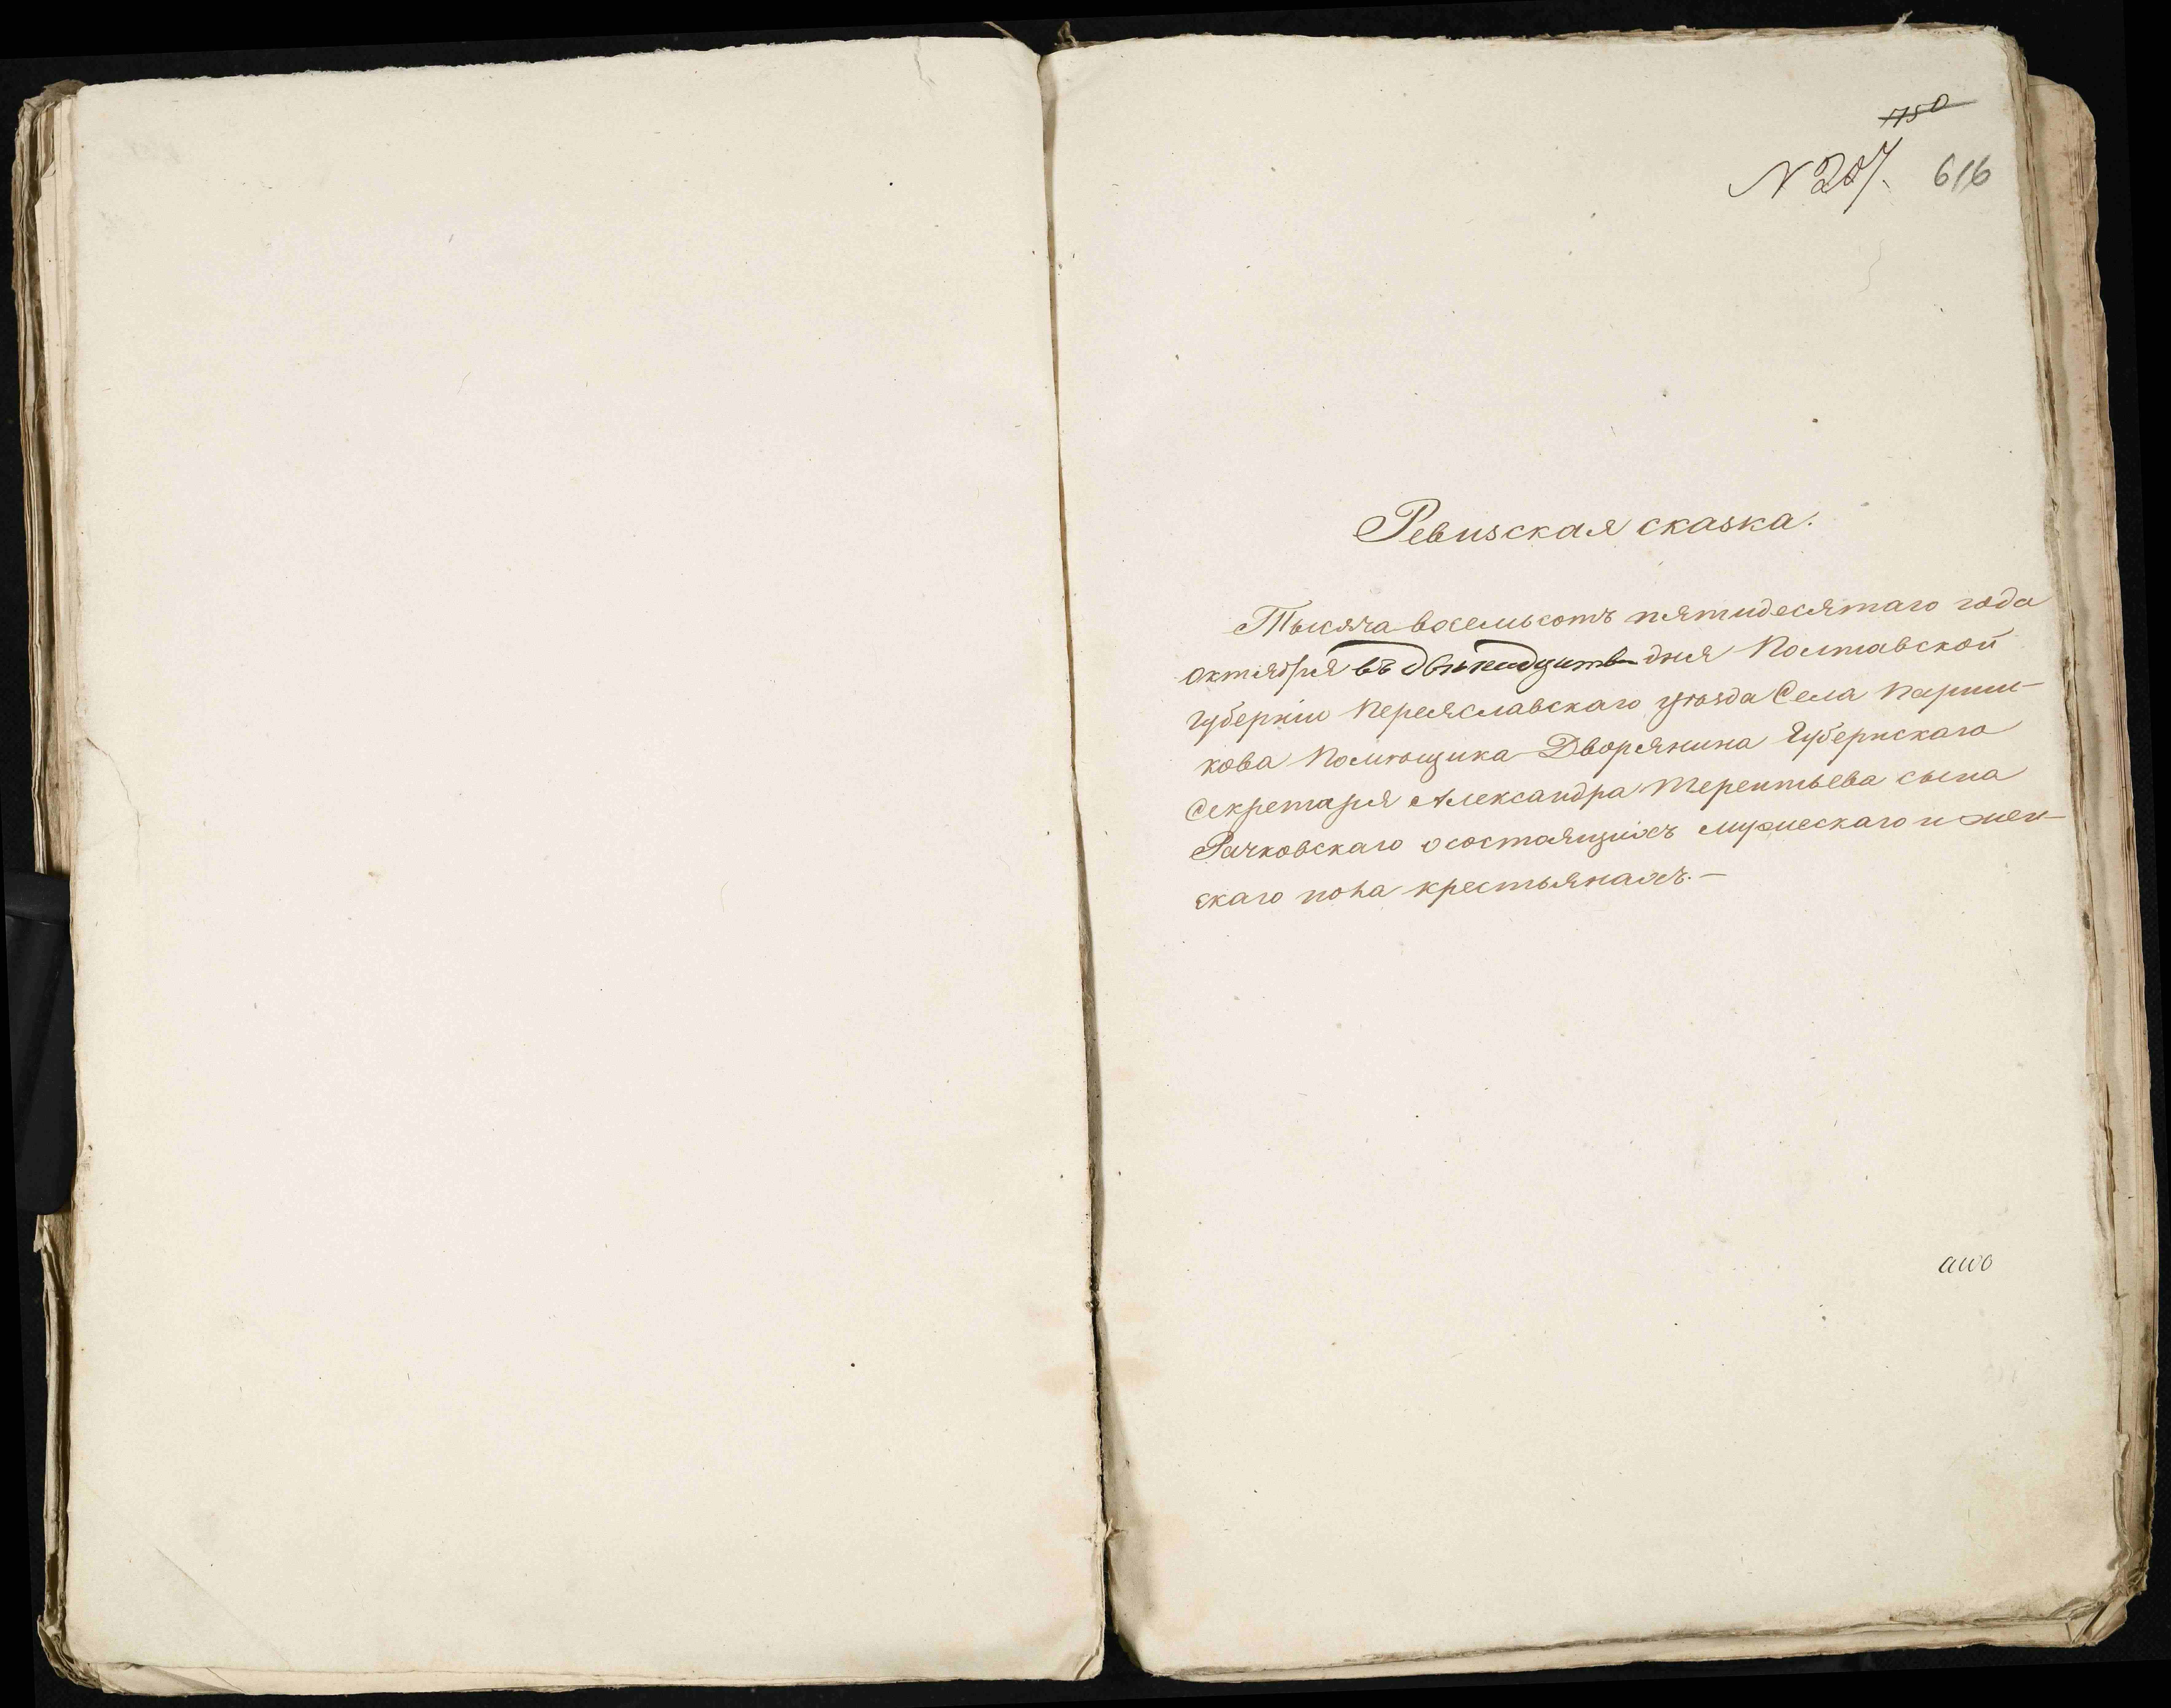 1750
N 207. 616
Ревизская сказка.
Тысяча восемьсотъ пятидесятаго года
Октября въ двѣнадцать дня Полтавской
Губерніи Переяславскаго уѣзда Села Парши-
кова Помѣщика Дворянина Губернскаго
Секретаря Александра Терентьева сына
Рачковскаго осостоящихъ мужескаго и жен-
скаго пола крестьянахъ.-